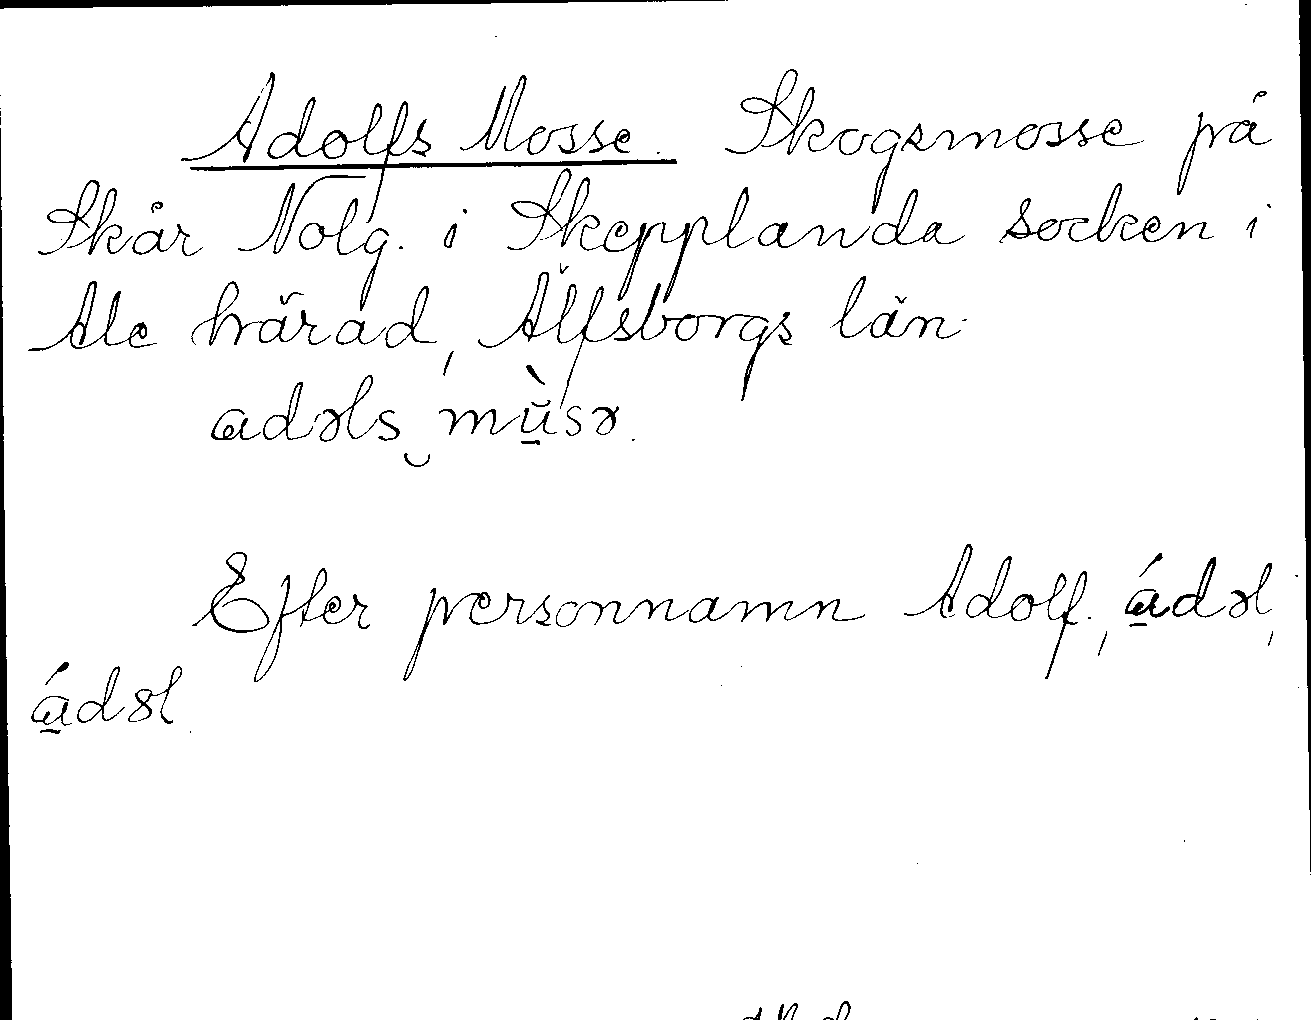 Adolfs Mosse. Skogsmosse på
Skår Nolg. i Skepplanda socken i
Ale härad, Älfsborgs län.
adəls mŭ̱̀sə.
Efter personnamn Adolf, á̱dəl,
á̱dɵl